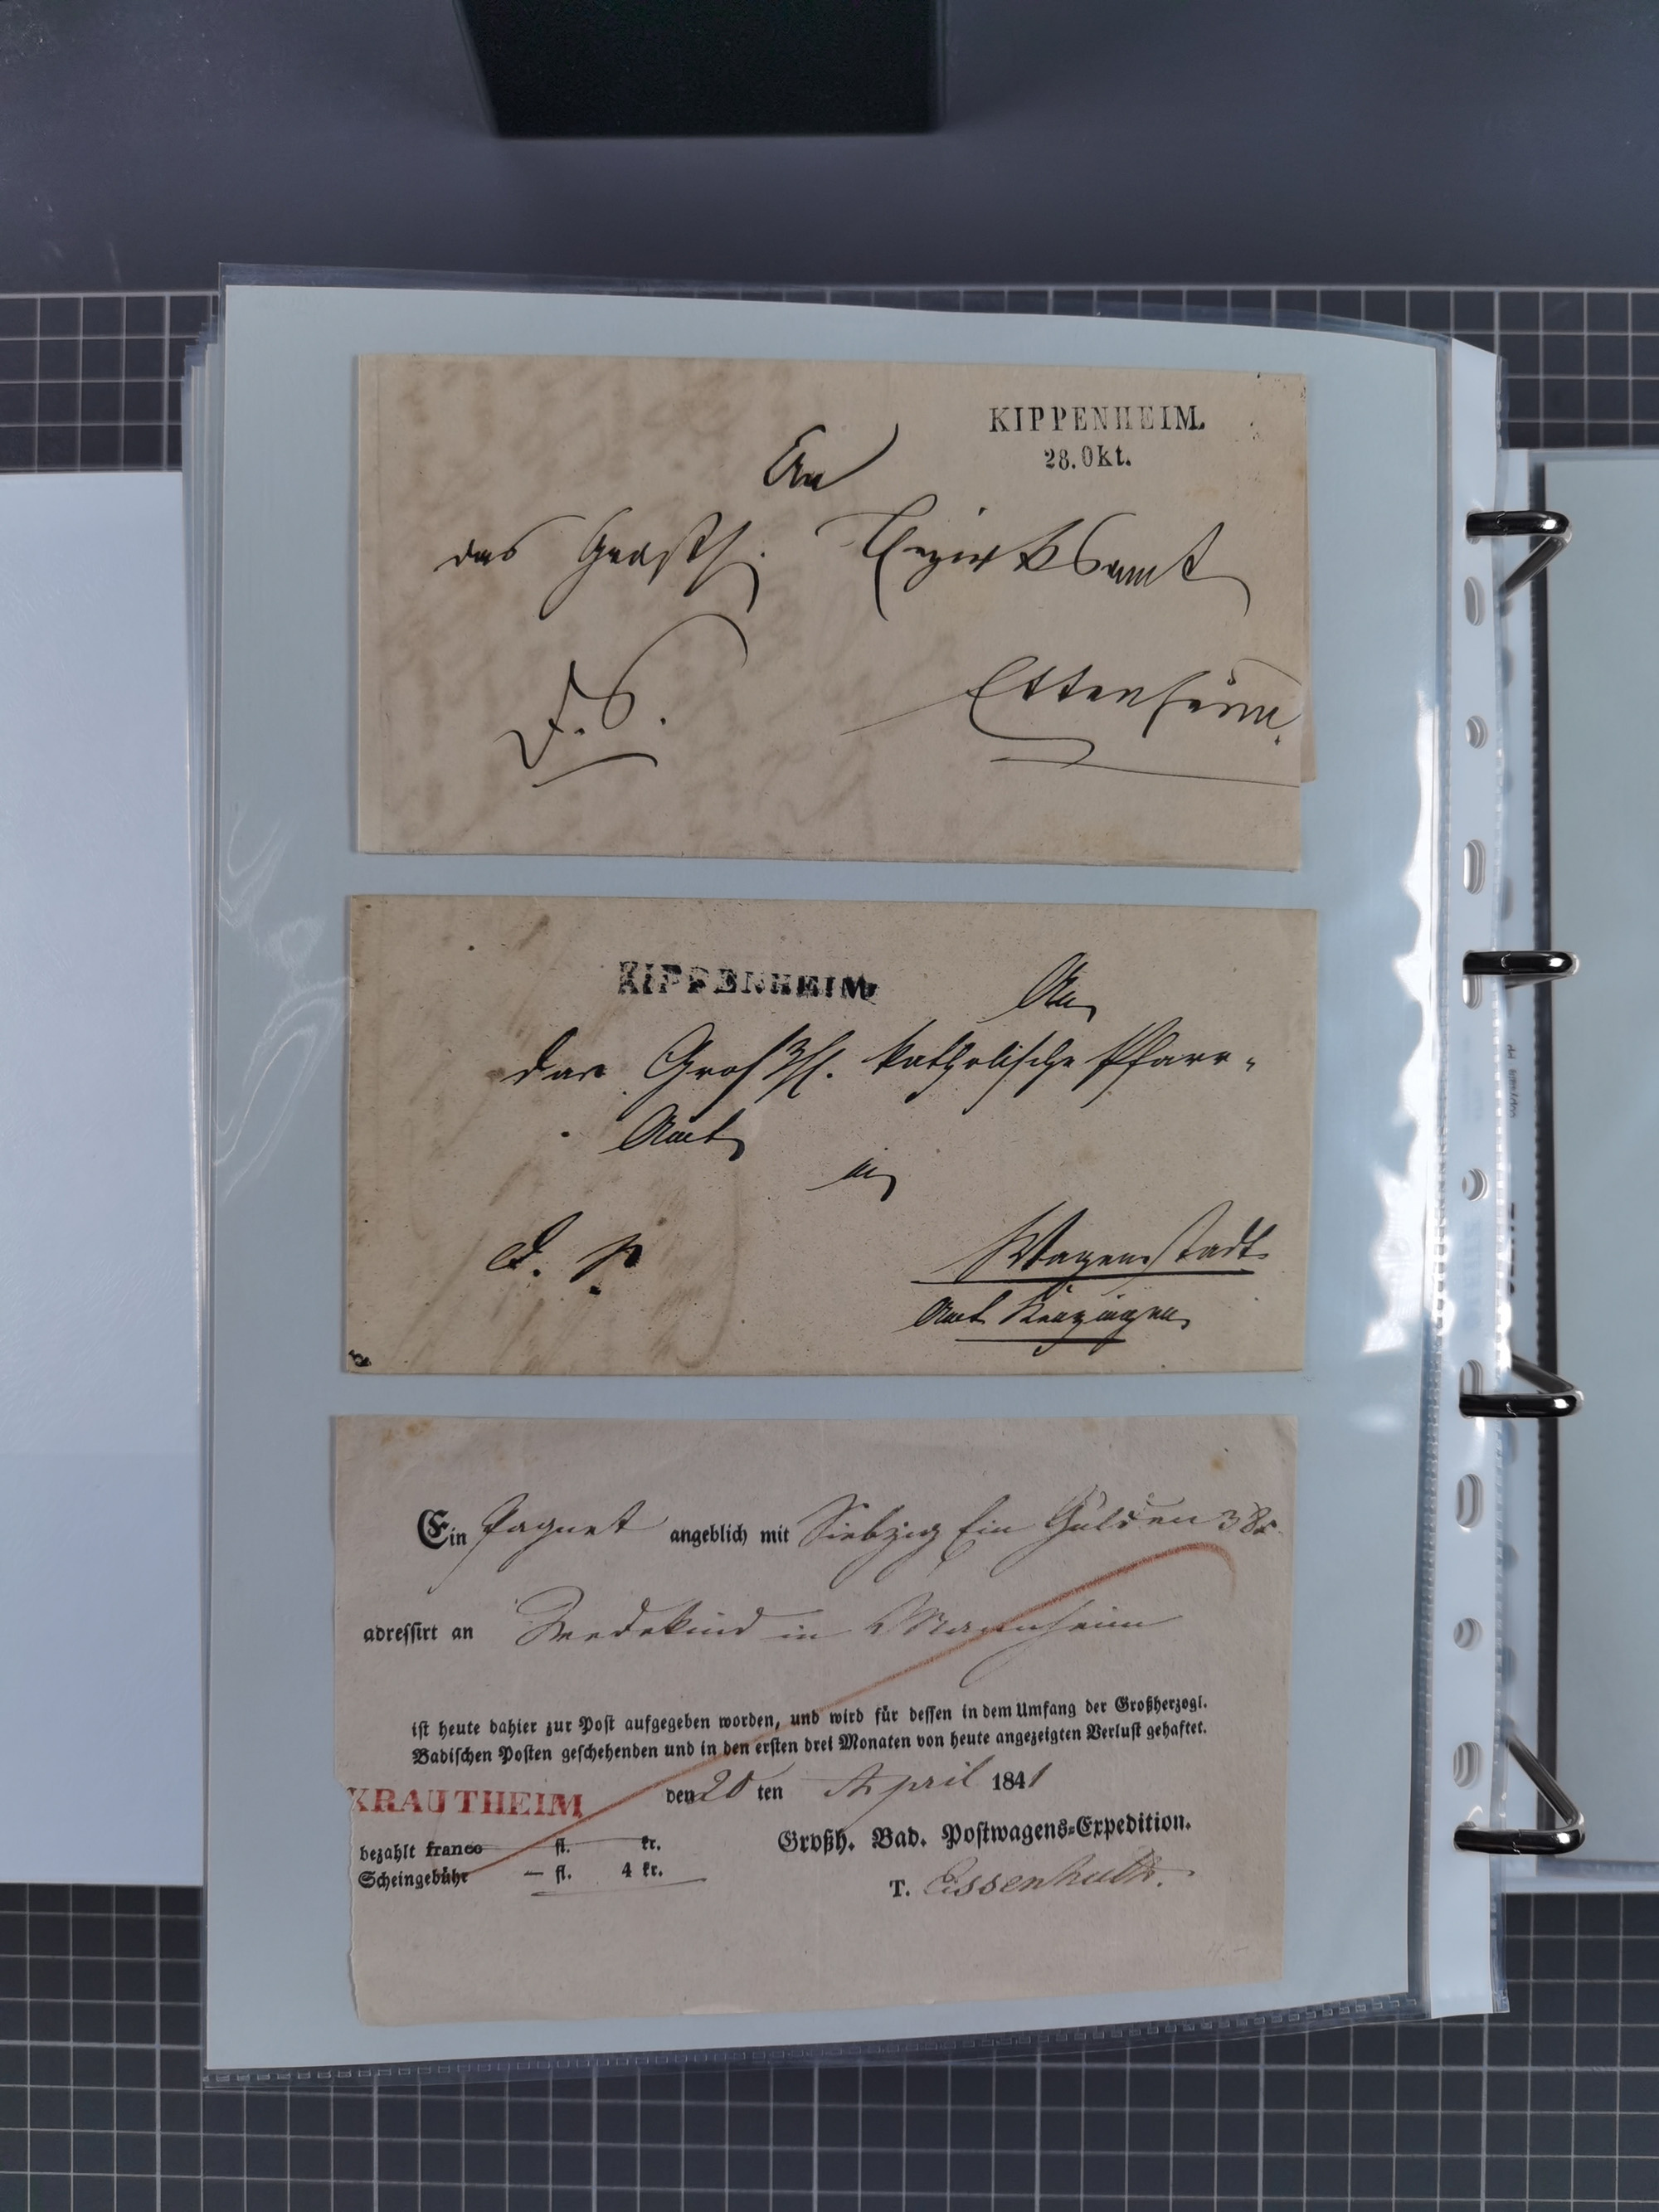 KIPPENHEIM.
28. Okt.
An
das Großh. Bezirksamt
D. S.
Ettenheim.
KIPPENHEIM
An
das Großh. katholische Pfarr-
Amt
in
D. S.
Wagenstadt
Amt Kenzingen
Ein Paquet angeblich mit Siebzig Ein Gulden 38x
adressirt an Wedekind in Mannheim
ist heute dahier zur Post aufgegeben worden, und wird für dessen in dem Umfang der Großherzogl.
Badischen Posten geschehenden und in den ersten drei Monaten von heute angezeigten Verlust gehaftet.
KRAUTHEIM den 20 ten April 1841
bezahlt franco fl. kr.
Großh. Bad. Postwagens-Expedition.
Scheingebühr — fl. 4 kr.
T. Eissenhuth.